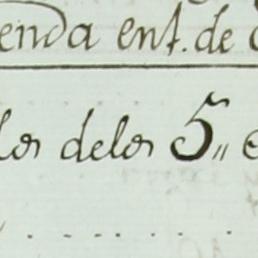 enda ent. de
los delos 5,, e